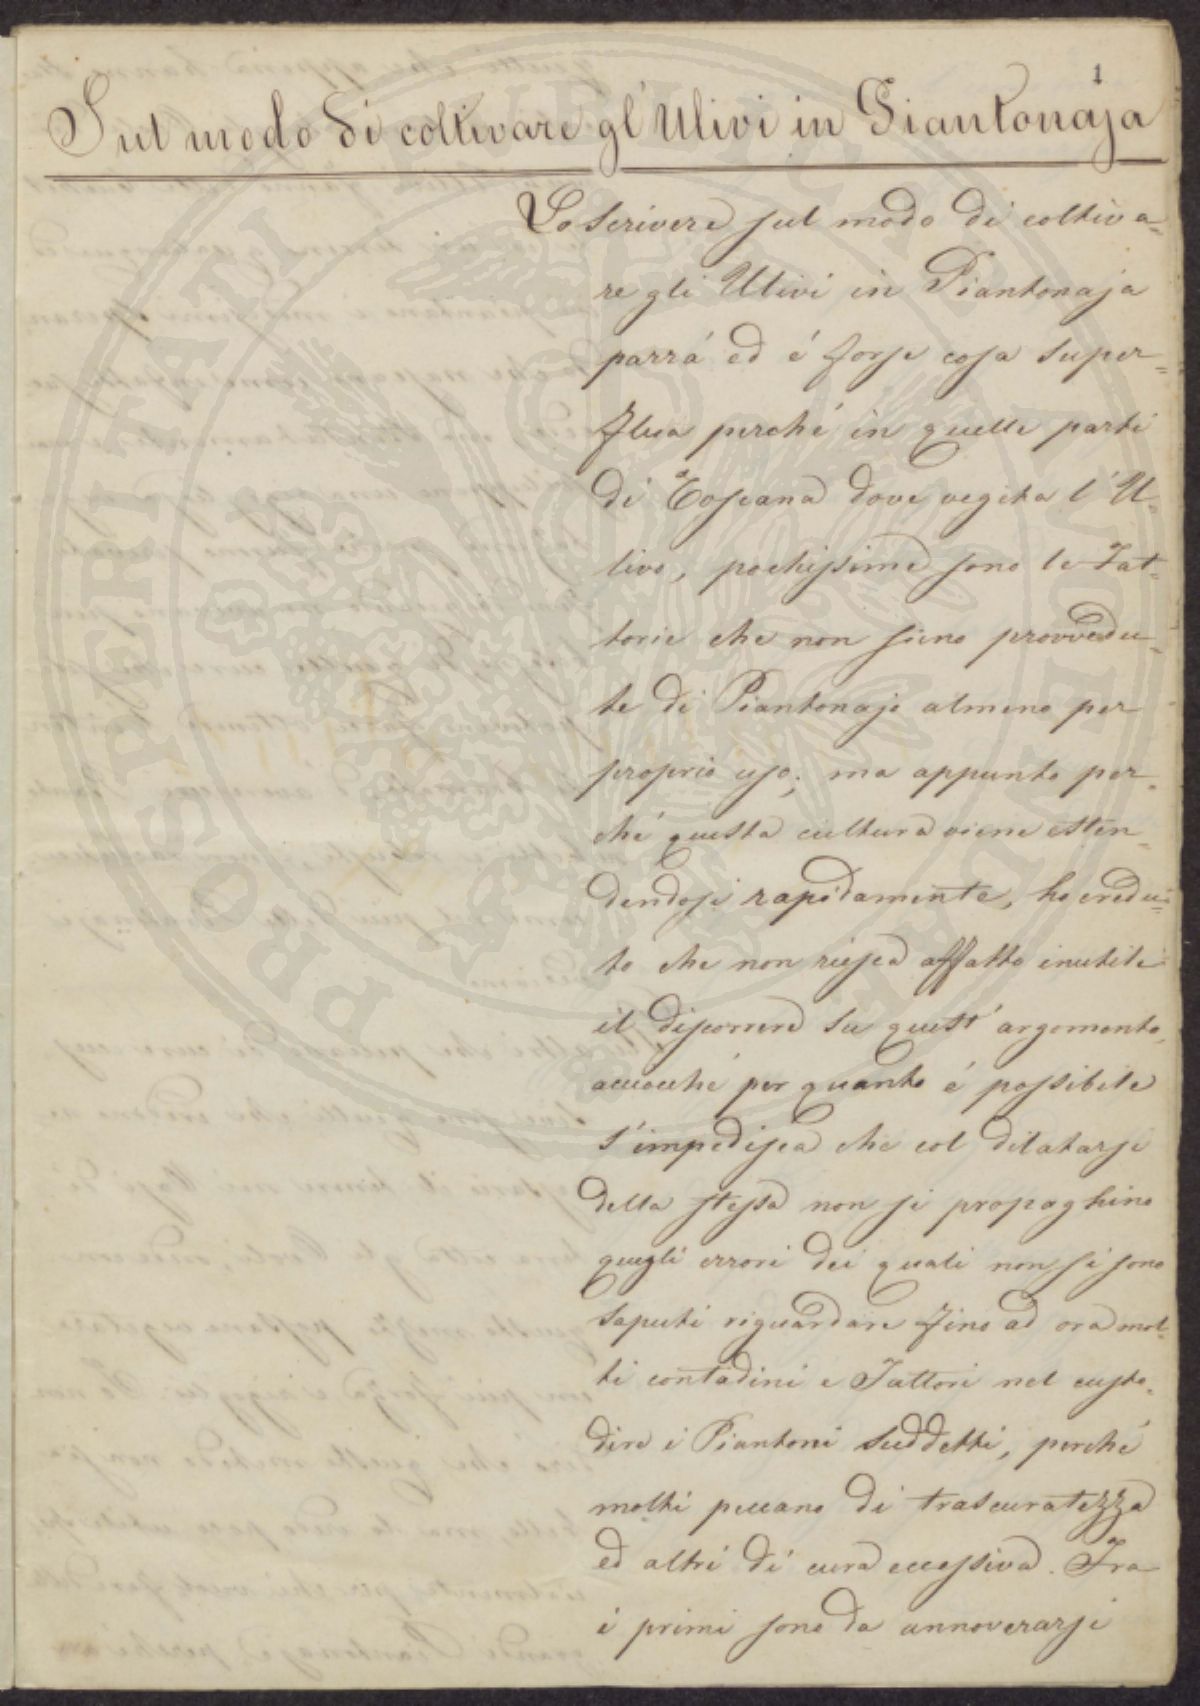 1
Sul modo di coltivare gl'Ulivi in Piantonaja
Lo scrivere sul modo di coltiva=
re gli Ulivi in Piantonaja
parrá ed é forse cosa super=
flua perché in quelle parti
di Toscana dove vegeta l'U=
livo, pochissime sono le Fat=
torie che non sieno provvedu=
te di Piantonaje almeno per
proprio uso; ma appunto per=
ché questa cultura viene esten=
dendosi rapidamente, ho credu=
to che non riesca affatto inutile
il discorrere su quest'argomento,
acciocché per quanto é possibile
s'impedisca che col dilatarsi
della stessa non si propaghino
quegli errori dei quali non si sono
saputi riguardare fino ad ora mol=
ti contadini e Fattori nel custo=
dire i Piantoni suddetti, perché
molti peccano di trascuratezza
ed altri di cura eccessiva. Fra
i primi sono da annoverarsi
PROSPERITATI PUBLICAE AUGENDAE